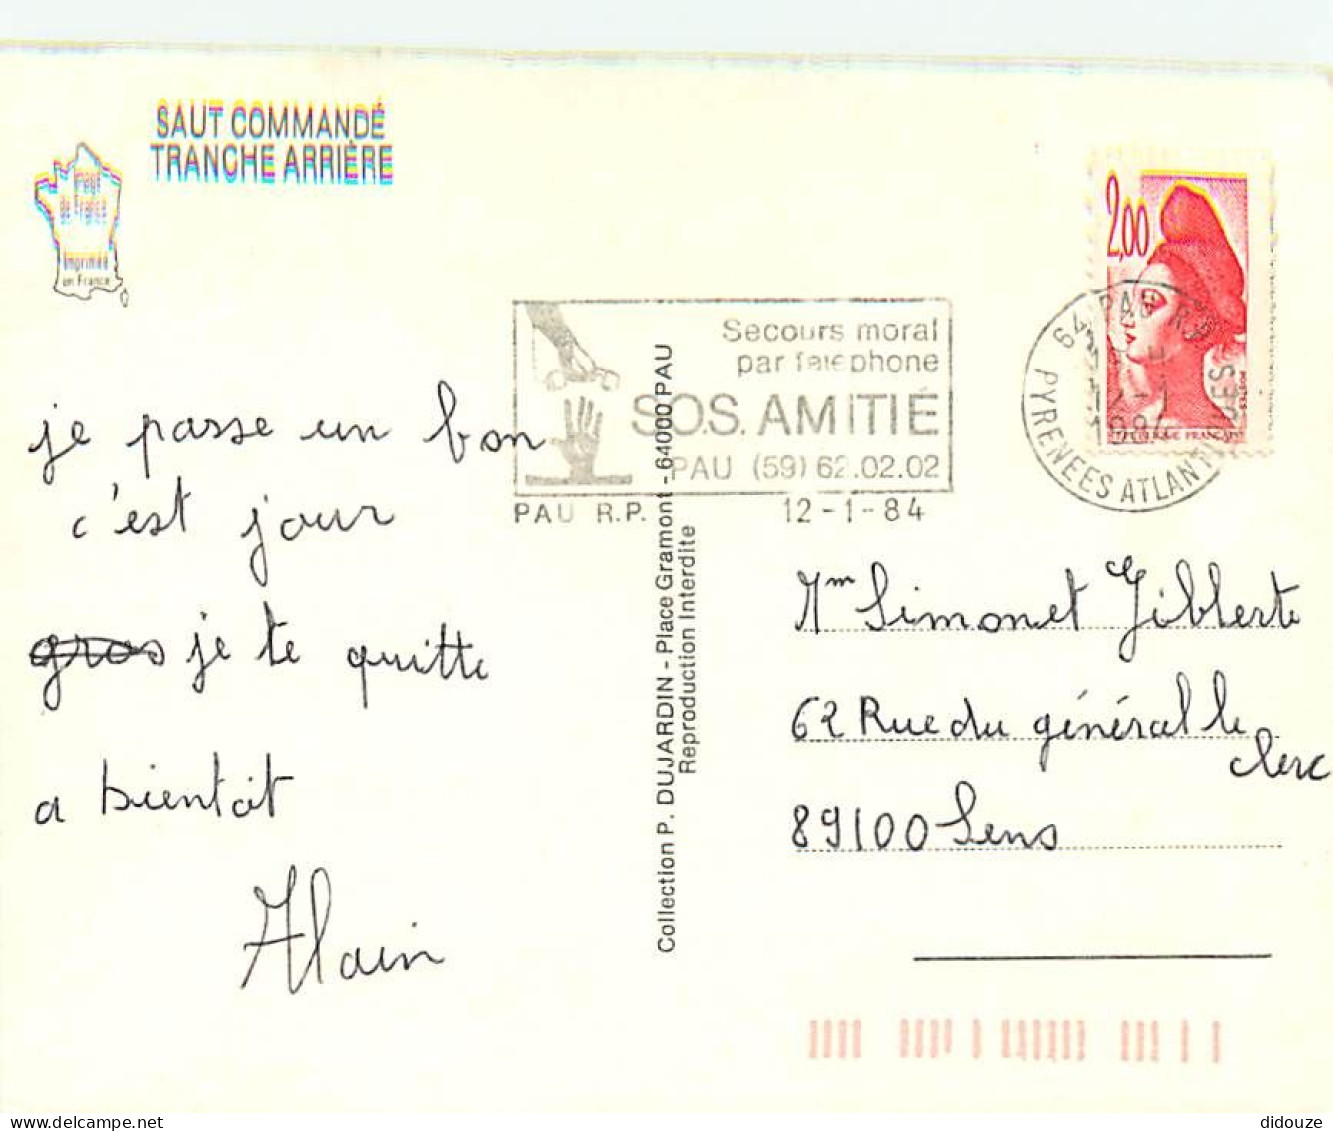 SAUT COMMANDÉ
TRANCHE ARRIÈRE
de France
Imprimée
en France
2,00
RÉPUBLIQUE FRANÇAISE
POSTES
64 PAU R.P.
12-1
1984
PYRENEES ATLANTIQUES
Secours moral
par téléphone
S.O.S. AMITIÉ
PAU (59) 62.02.02
PAU R.P.
12-1-84
je passe un bon
c'est jour
gros je te quitte
a bientôt
Alain
Collection P. DUJARDIN - Place Gramont - 64000 PAU
Reproduction Interdite
Mm Simonet Gilberte
62 Rue du général le
clerc
89100 Sens
didouze